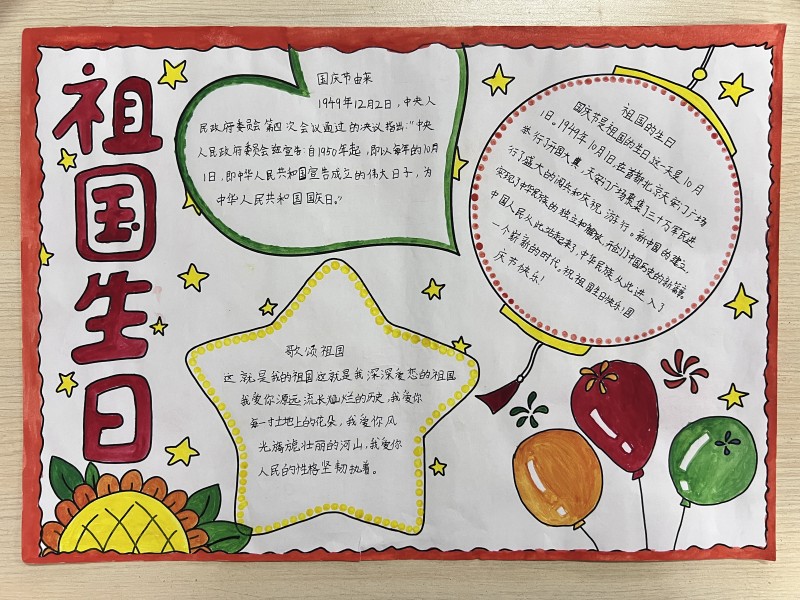 祖国生日
国庆节由来
1949年12月2日，中央人
民政府委员会第四次会议通过的决议指出："中央
人民政府委员会宣告：自1950年起，即以每年的10月
1日，即中华人民共和国宣告成立的伟大日子，为
中华人民共和国国庆日。"
祖国的生日
国庆节是祖国的生日这一天是10月
1日。1949年10月1日，在首都北京天安门广场
举行了开国大典，天安门广场聚集了三十万军民进
行了盛大的阅兵和庆祝游行。新中国的建立，
实现了中华民族的独立和解放，开创了中国历史的新篇章。
中国人民从此站起来了，中华民族从此进入了
一个崭新的时代。祝祖国生日快乐！国
庆节快乐！
歌颂祖国
这就是我的祖国这就是我深深爱恋的祖国
我爱你源远流长灿烂的历史，我爱你
每一寸土地上的花朵，我爱你风
光旖旎壮丽的河山，我爱你
人民的性格坚韧执着。